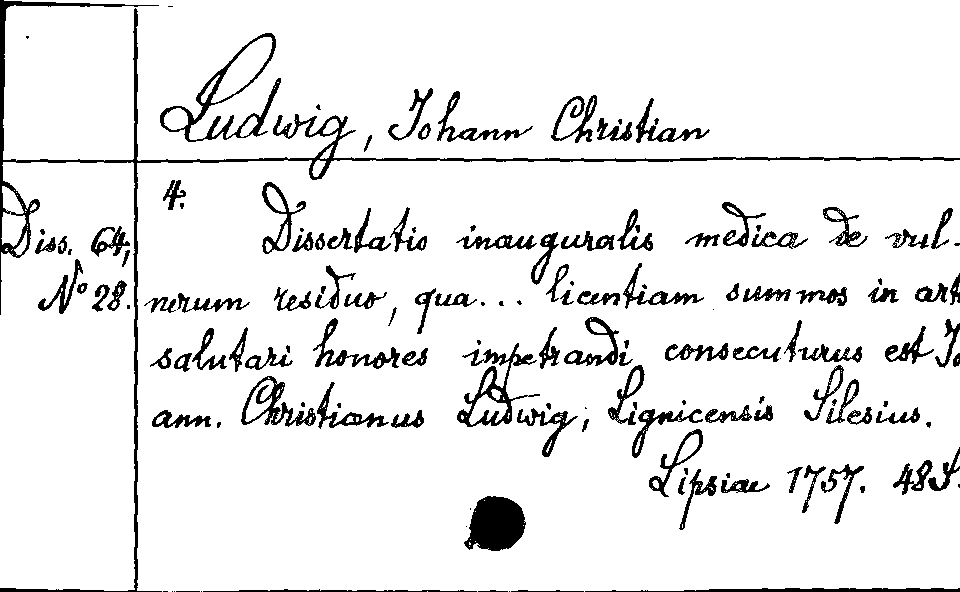 Ludwig, Johann Christian
4.
Diss. 64,
No 28.
Dissertatio inauguralis medica de vul-
nerum residuo, qua... licentiam summos in art
salutari honores impetrandi consecuturus est Jo
ann. Christianus Ludwig, Lignicensis Silesius.
Lipsiae 1757. 48 S.